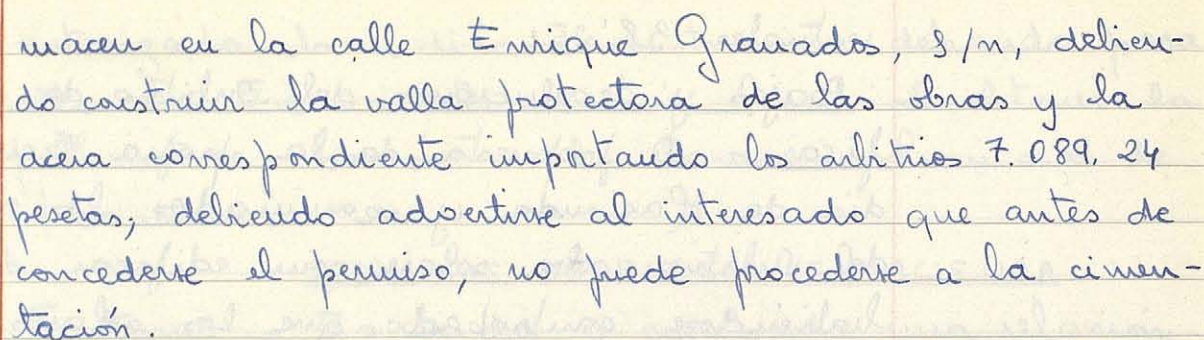 macen en la calle Enrique Granados, s/n, debien-
do construir la valla protectora de las obras y la
acera correspondiente importando los arbitrios 7.089.24
pesetas, debiendo advertirse al interesado que antes de
concederse el permiso, no puede procederse a la cimen-
tación.